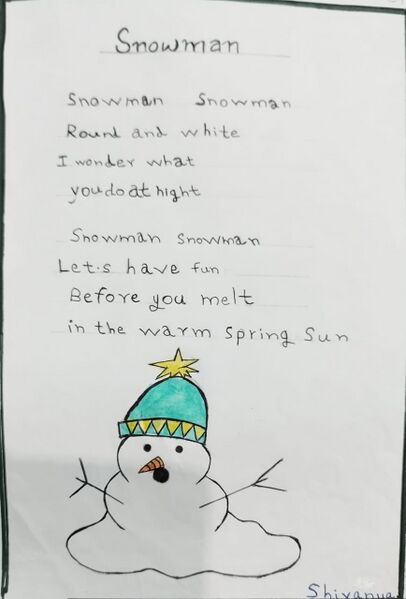 Snowman
Snowman Snowman
Round and white
I wonder what
you do at night
Snowman Snowman
Let's have fun
Before you melt
in the warm spring Sun
Shivanya